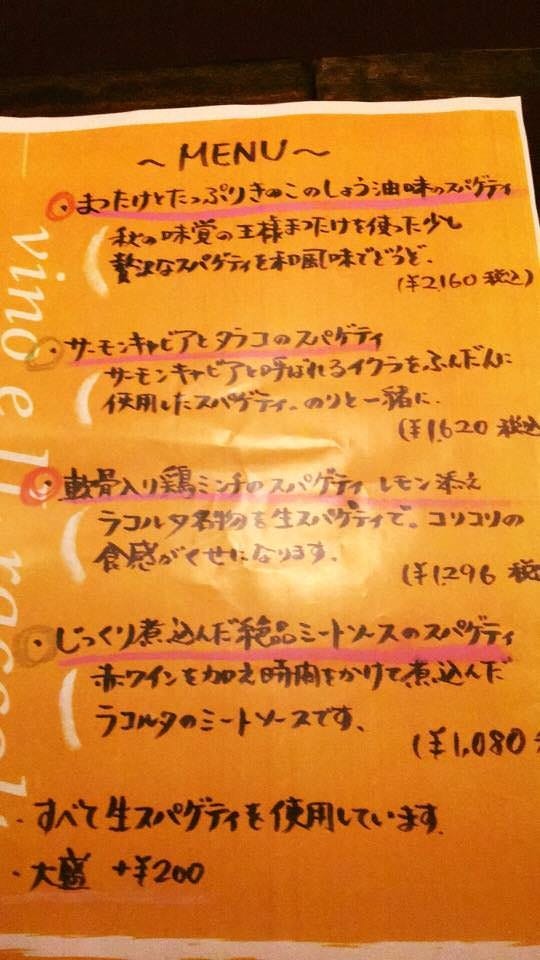 ~ MENU ~
・まつたけとたっぷりきのこのしょう油味のスパゲティ
秋の味覚の王様まつたけを使った少し
贅沢なスパゲティを和風味でどうぞ.
(¥2,160 税込)
・サーモンキャビアとタラコのスパゲティ
サーモンキャビアと呼ばれるイクラをふんだんに
使用したスパゲティ。のりと一緒に.
(¥1,620 税込
・軟骨入り鶏ミンチのスパゲティ レモン添え
ラコルタ名物を生スパゲティで。コリコリの
食感がくせになります.
(¥1,296 税
・じっくり煮込んだ絶品ミートソースのスパゲティ
赤ワインを加え時間をかけて煮込んだ
ラコルタのミートソースです、
(¥1,080
・すべて生スパゲティを使用しています.
・大盛 +¥200
vino e la raccol